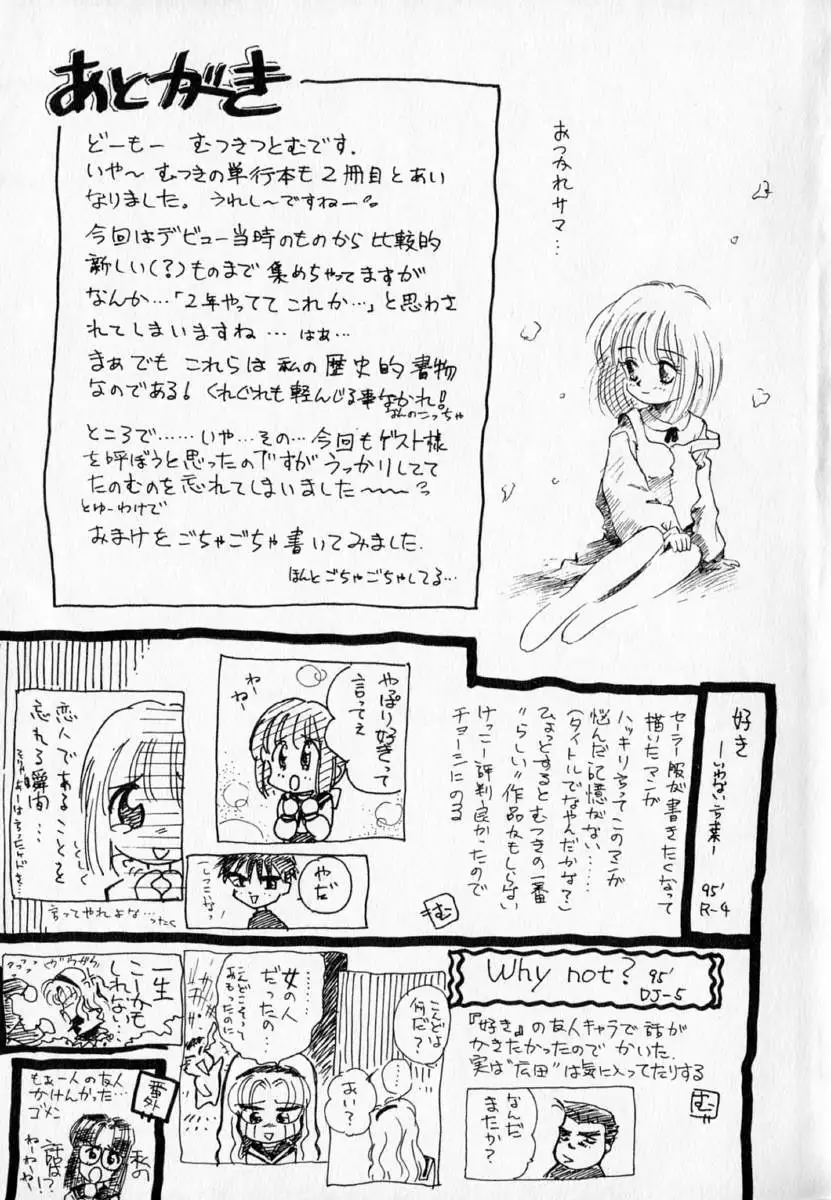 あとがき
どーもー むつきつとむです.
いや〜 むつきの単行本も2冊目とあい
なりました。うれし〜ですねー。
今回はデビュー当時のものから比較的
新しい(?)ものまで集めちゃってますが
なんか…「2年やってて これか…」と思わさ
れてしまいますね… はぁ…
まぁでも これらは私の歴史的書物
なのである! くれぐれも軽んじる事なかれ!
なんのこっちゃ
ところで……いや…その…今回もゲスト様
を呼ぼうと思ったのですが うっかりしてて
たのむのを忘れてしまいました〜〜〜?
とゆーわけで
おまけをごちゃごちゃ書いてみました.
ほんとごちゃごちゃしてる…
おつかれサマ…
好き
ーいわない言葉ー
95'
R-4
セーラー服が書きたくなって
描いたマンガ
ハッキリ言ってこのマンガ
悩んだ記憶がない……
(タイトルでなやんだかな?)
ひょっとするとむつきの一番
"らしい"作品かもしらない
けっこー評判良かったので
チョーシにのる
む
やっぱり好きって
言ってぇ
わーねー
やだ
しつこいなっ
恋人であることを
忘れる瞬間…
しくしく
言ってやれよな…ったく
Why not?
95'
DJ-5
『好き』の友人キャラで話が
かきたかったので かいた.
実は"広田"は気に入ってたりする
む
なんだ
またか?
こんどは
何だ?
あい?
……女の人
だったの…
一生
こーかも
しれない…
番外
もぉ一人の友人
かけんかった…
ゴメン
私の
話は!?
ねーねーや!